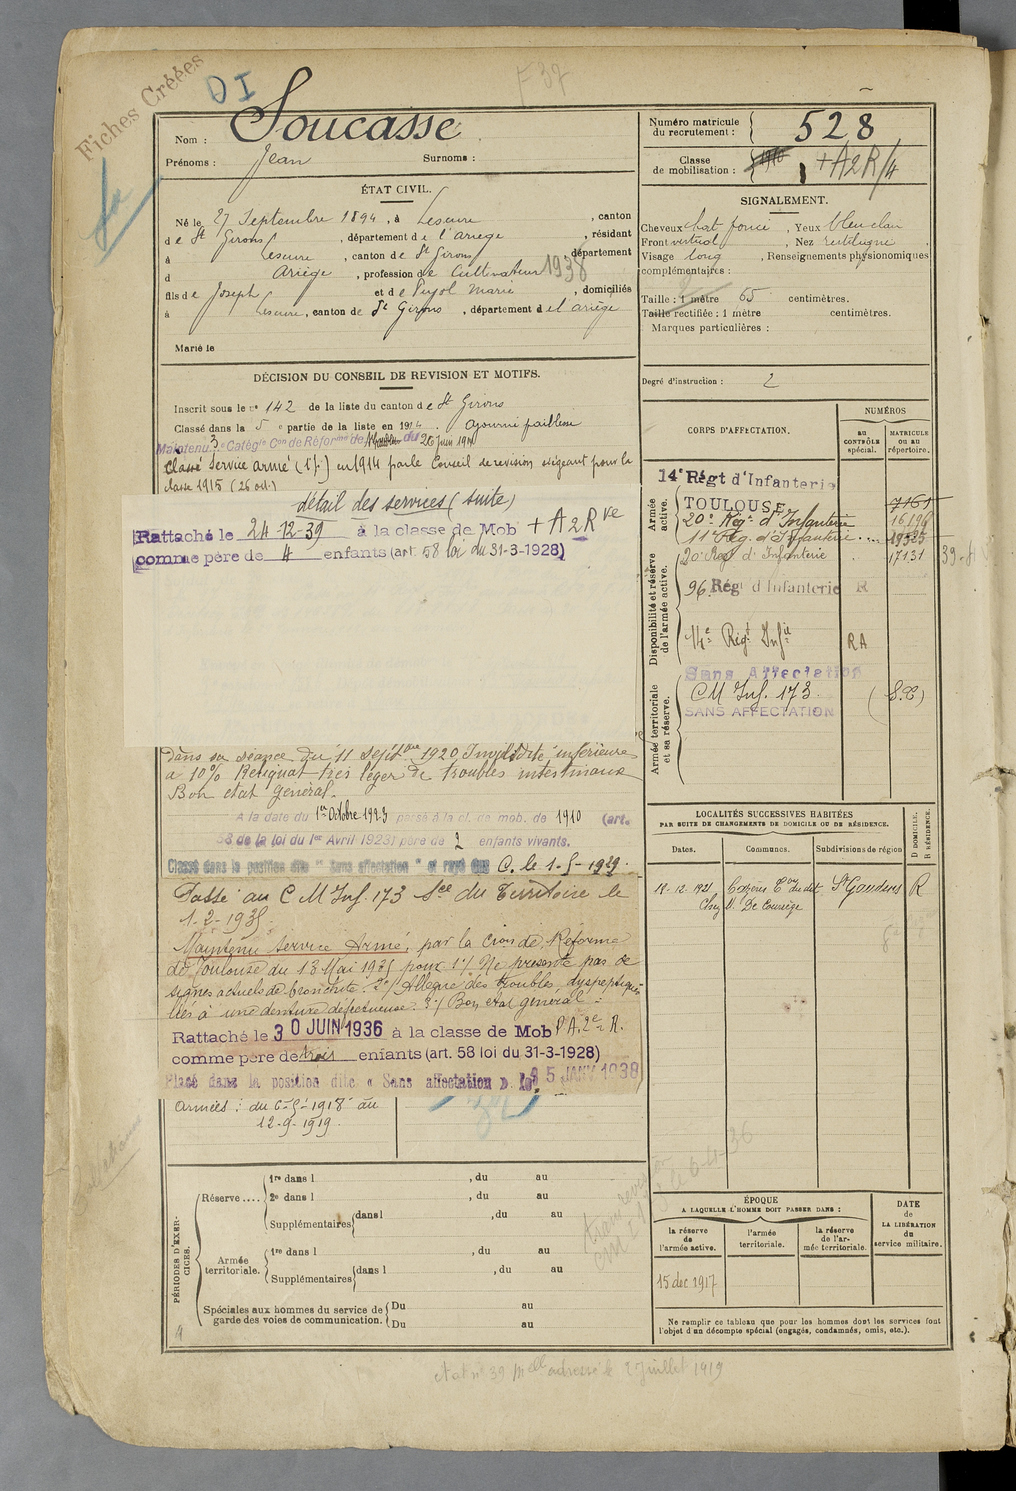 Fiches Créées
DI
F 37
Nom : Soucasse
Prénoms : Jean Surnoms :
Numéro matricule du recrutement : 528
Classe de mobilisation : 1910 + A2R/4
ÉTAT CIVIL.
Né le 27 Septembre 1894, à Lescure, canton
de St Girons, département de l'ariège, résidant
à Lescure, canton de St Girons département
d Ariège, profession de Cultivateur 1938
fils de Joseph et de Pujol Marie, domiciliés
à Lescure, canton de St Girons, département de l'ariège
Marié le
SIGNALEMENT.
Cheveux chat. foncé, Yeux bleu clair
Front vertical, Nez rectiligne
Visage long, Renseignements physionomiques
complémentaires :
Taille : 1 mètre 65 centimètres.
Taille rectifiée : 1 mètre centimètres.
Marques particulières :
Degré d'instruction : 2
DÉCISION DU CONSEIL DE REVISION ET MOTIFS.
Inscrit sous le n° 142 de la liste du canton de St Girons
Classé dans la 5e partie de la liste en 1914. Ajourné faiblesse
Maintenu 3e Catégie Con de Réforme de du 20 juin 19
Classé Service armé (1 p.) en 1914 par le Conseil de revision siégeant pour la
classe 1915 (26 oct.)
détail des services (suite)
Rattaché le 24-12-39 à la classe de Mob + A2Rve
comme père de 4 enfants (art. 58 loi du 31-3-1928)
dans sa séance du 11 Septbre 1920 Invalidité inférieure
à 10% Reliquat très léger de troubles intestinaux
Bon état général.
A la date du 1er Octobre 1923 passé à la cl. de mob. de 1910 (art.
58 de la loi du 1er Avril 1923) père de 2 enfants vivants.
Classé dans la position dite "Sans affectation" et rayé des C. le 1-5-1929.
Passé au C M Inf. 173 Sce du Territoire le
1-2-1935.
Maintenu Service Armé, par la Cion de Réforme
de Toulouse du 13 Mai 1935 pour 1°/ Ne présente pas de
signes actuels de bronchite. 2°/ Allègue des troubles dyspeptiques
liés à une denture défectueuse. 3°/ Bon état général.
Rattaché le 30 JUIN 1936 à la classe de Mob P.A. 2e R.
comme père de trois enfants (art. 58 loi du 31-3-1928)
Placé dans la position dite « Sans affectation » le 5 JANV 1938
Armées : du 6-5-1918 au
12-9-1919.
CORPS D'AFFECTATION.
NUMÉROS
au CONTRÔLE spécial.
MATRICULE ou au répertoire.
Armée active.
14e Régt d'Infanterie
TOULOUSE 7161
20e Rég. d'Infanterie 16196
11e Rég. d'Infanterie
Disponibilité et réserve de l'armée active.
20e Rég d'Infanterie 17131
96 Régt d'Infanterie R
14e Régt Infie RA
Sans Affectation
Armée territoriale et sa réserve.
CM Inf. 173.
SANS AFFECTATION
LOCALITÉS SUCCESSIVES HABITÉES
PAR SUITE DE CHANGEMENTS DE DOMICILE OU DE RÉSIDENCE.
Dates. Communes. Subdivisions de région D DOMICILE. R RÉSIDENCE.
18-12-1921 Cazères Con du dit St Gaudens R
Chez M. De
PÉRIODES D'EXERCICES.
Réserve .... 1re dans l , du au
2e dans l , du au
Supplémentaires dans l , du au
Armée territoriale. 1re dans l , du au
Supplémentaires dans l , du au
Spéciales aux hommes du service de garde des voies de communication. Du au
Du au
ÉPOQUE
A LAQUELLE L'HOMME DOIT PASSER DANS :
la réserve de l'armée active.
l'armée territoriale.
la réserve de l'armée territoriale.
DATE de LA LIBÉRATION du service militaire.
15 dec 1917
Ne remplir ce tableau que pour les hommes dont les services font
l'objet d'un décompte spécial (engagés, condamnés, omis, etc.).
état n° 39 mell adressé le 2 juillet 1919